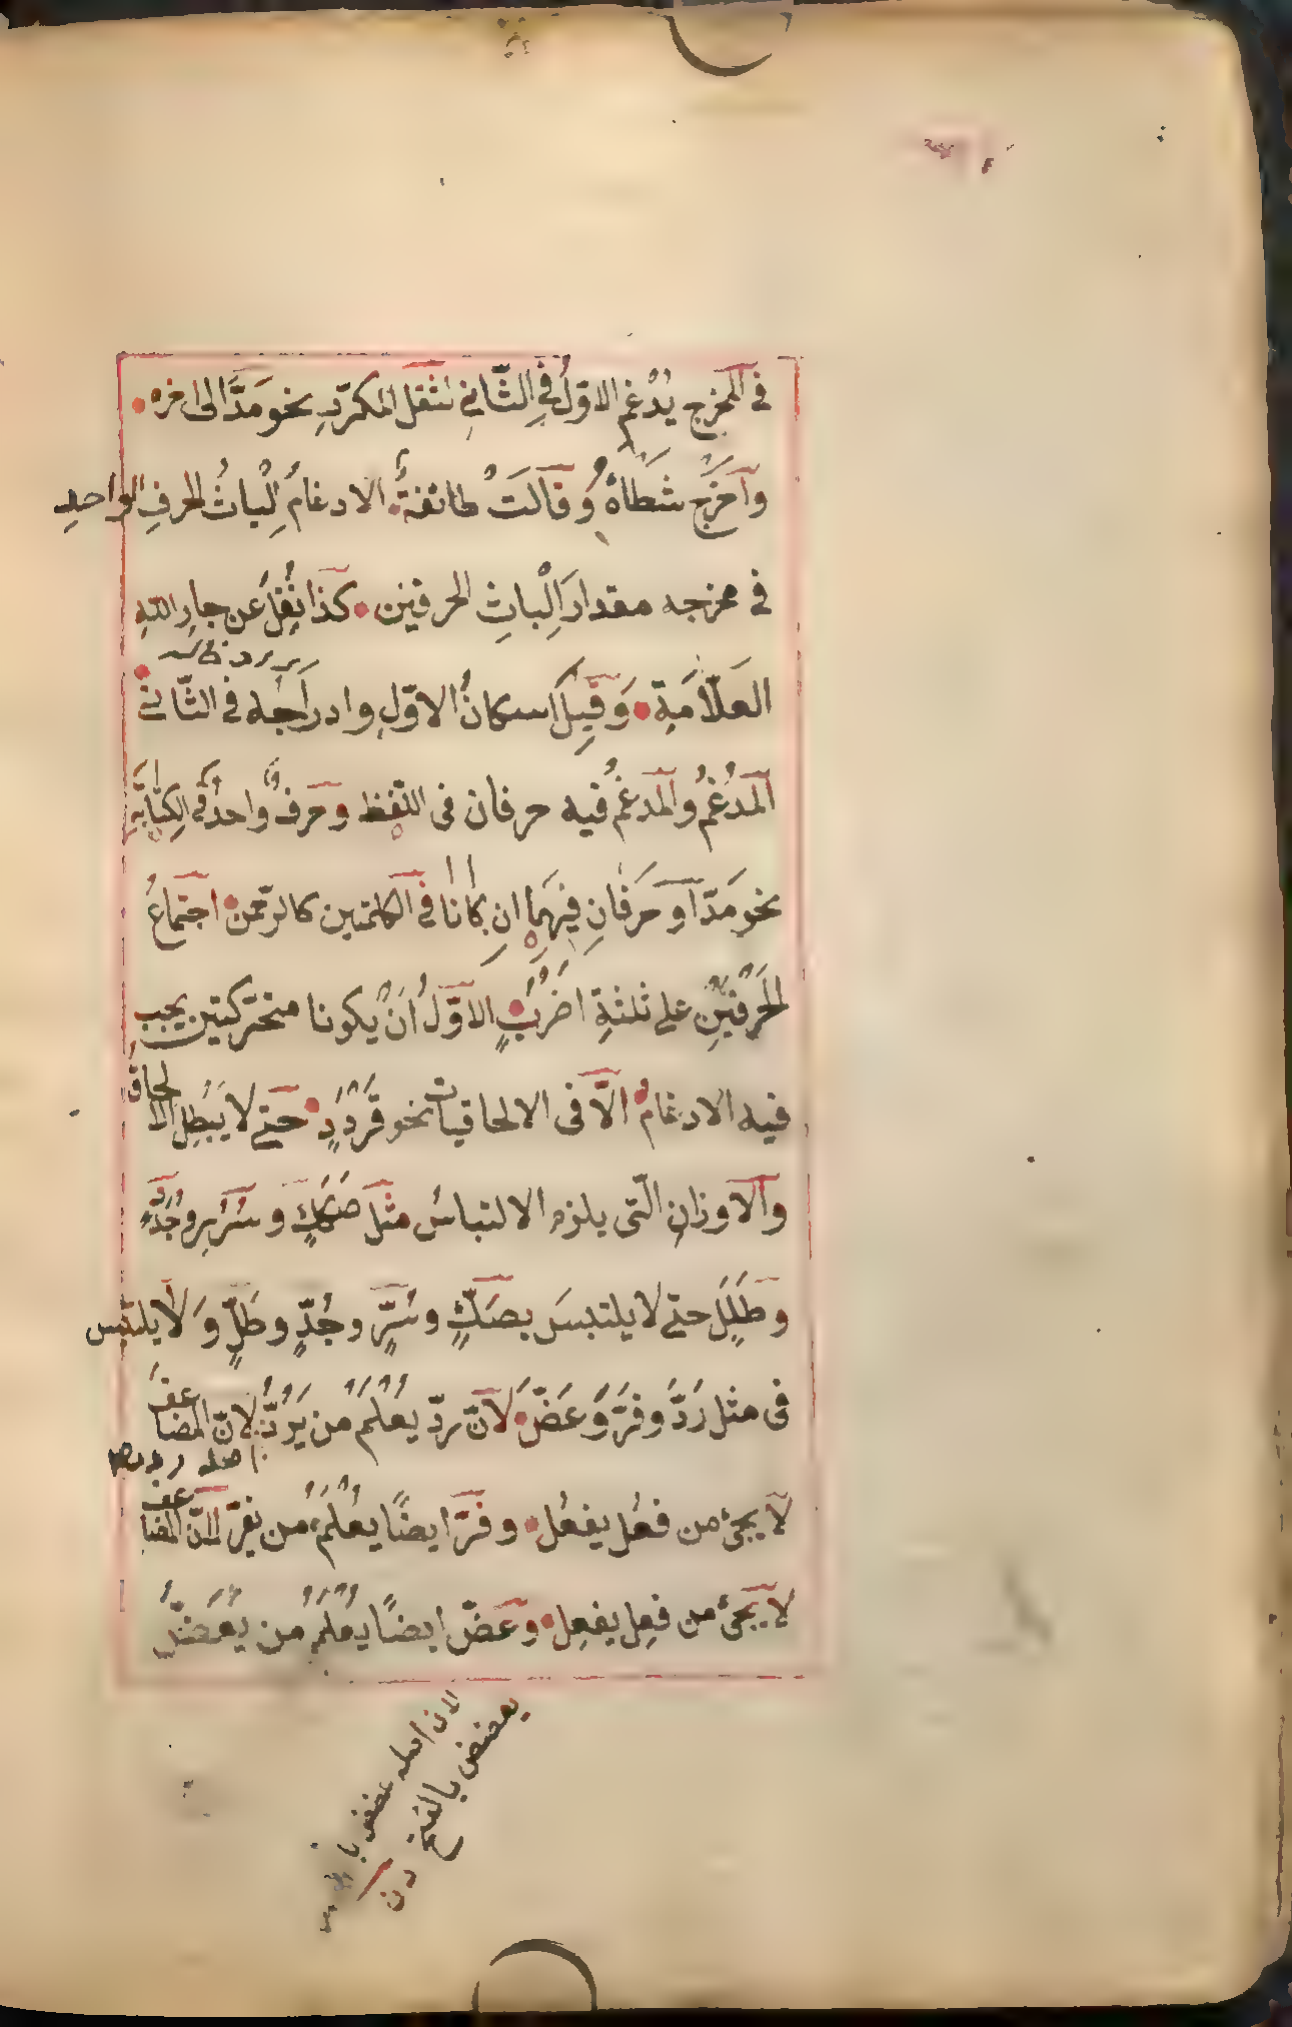 في المخرج يُدْغم الاوّلُ في الثّاني لثقل المكرّرِ نحو مَدَّ الى اخره
وَاَخْرَجَ شَطْأَهُ وَقَالَتْ طائفةٌ الادغامُ اِلْباثُ الحرفِ الواحدِ
في مخرجه مقدارَ اِلْباثِ الحرفين كذا نُقِلَ عن جارِ اللّهِ
العَلّامَةِ وَقِيلَ اسكانُ الاوّلِ وادراجُه في الثّاني
المُدْغَمُ والمُدغمُ فيه حرفان في اللّفظ وحرفٌ واحدٌ في الكِتابَةِ
نحو مَدَّ او حَرفانِ فِيهِما ان كانا في الكلمتين كالرّحمن اجتماعُ
الحَرْفَيْنِ على ثلثةِ اَضْرُبٍ الاوّلُ اَنْ يكونا متحرّكتين يجب
فيه الادغامُ الّا في الالحاقيات نحو قَرْدَدٍ حَتّى لا يَبْطِل الالحاق
والاوزانِ الّتي يلزم الالتباسُ مثل صَكَكٍ وسُرُرٍ وجُدَدٍ
وطَلَلٍ حتّى لا يلتبسَ بصَكٍّ وسُرٍّ وجُدٍّ وطَلٍّ وَلَا يلتبس
في مثل رَدَّ وفَرَّ وعَضَّ لاَنَّ ردّ يُعْلَمُ من يَرُدُّ لانّ المضاعفَ
لا يجئ من فعُل يفعُل وفَرَّ ايضًا يُعْلَمُ من يفرّ لانّ المضاعف
لا يجئ من فعِل يفعِل وعَضّ ايضًا يُعْلَمُ من يَعَضُّ
لان اصله عضض
يعضض بالفتح